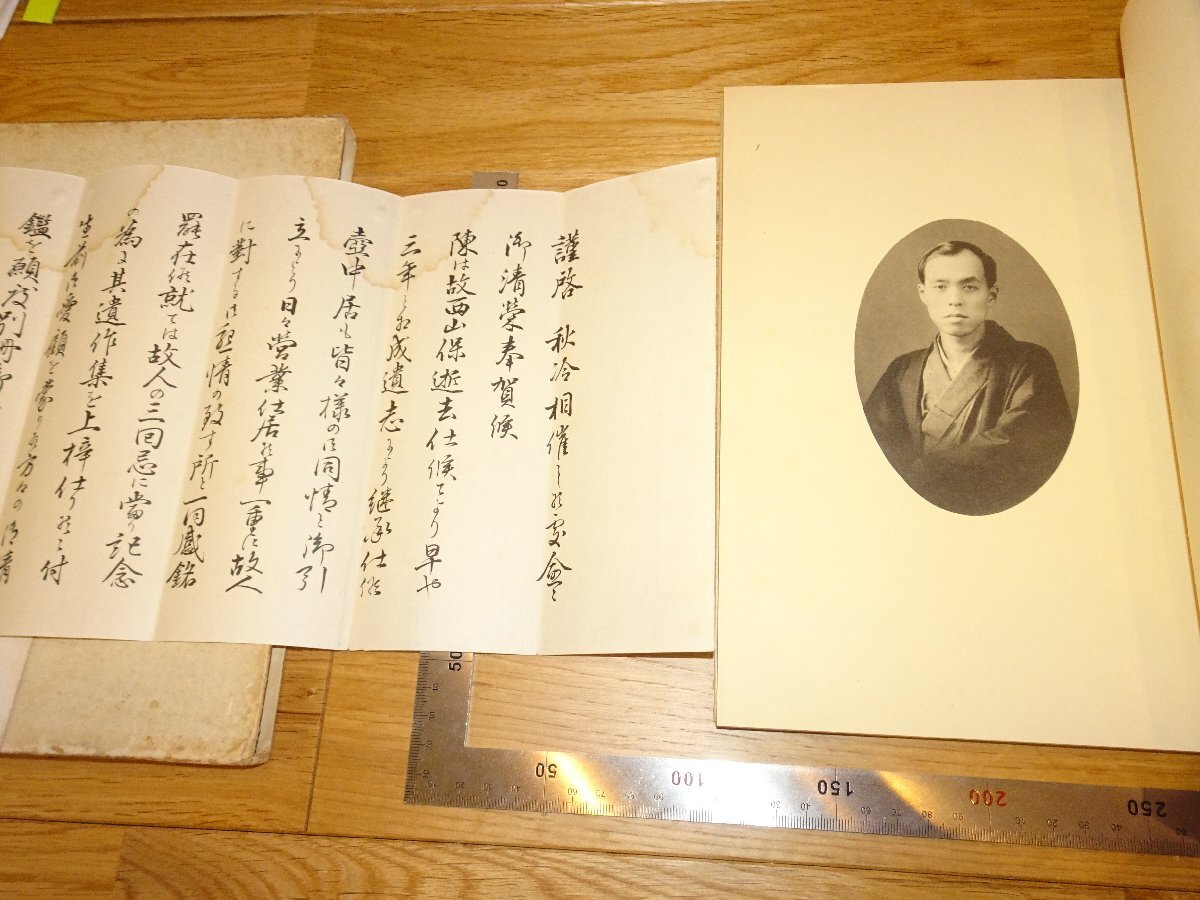 謹啓 秋冷相催し候處愈々
御清榮奉賀候
陳は故西山保逝去仕候てより早や
三年と相成遺志により継承仕候
壺中居も皆々様の御同情と御引
立により日々營業仕居候事一重に故人
に對する御忍情の致す所と一同感銘
罷在候就ては故人の三回忌に當り記念
の為に其遺作集を上梓仕り候に付
生前御愛顧を蒙りし方々の御清
鑑を願度別冊
50
50
100
150
200
250